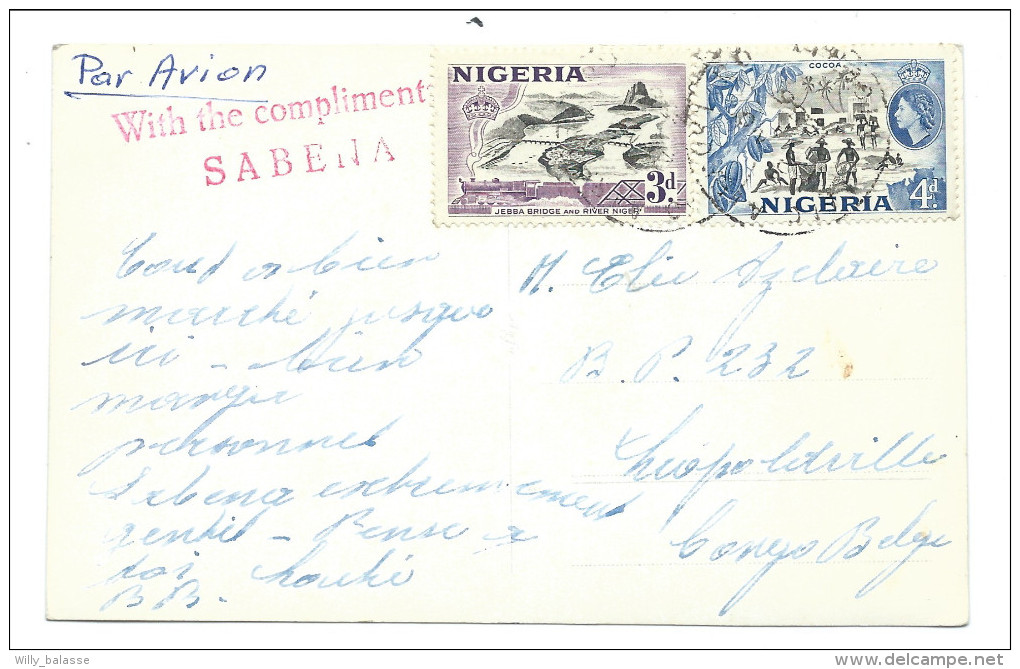 Par Avion
With the compliment
SABENA
NIGERIA
3d.
JEBBA BRIDGE AND RIVER NIGER
COCOA
NIGERIA
4d.
Tout a bien
marché jusque
ici - bien
mangé
personnel
Sabena extremement
gentil - Pense a
toi
B B -
M. Elie Azdaire
B. P. 232
Léopoldville
Congo Belge
Willy_balasse
delcampe.net